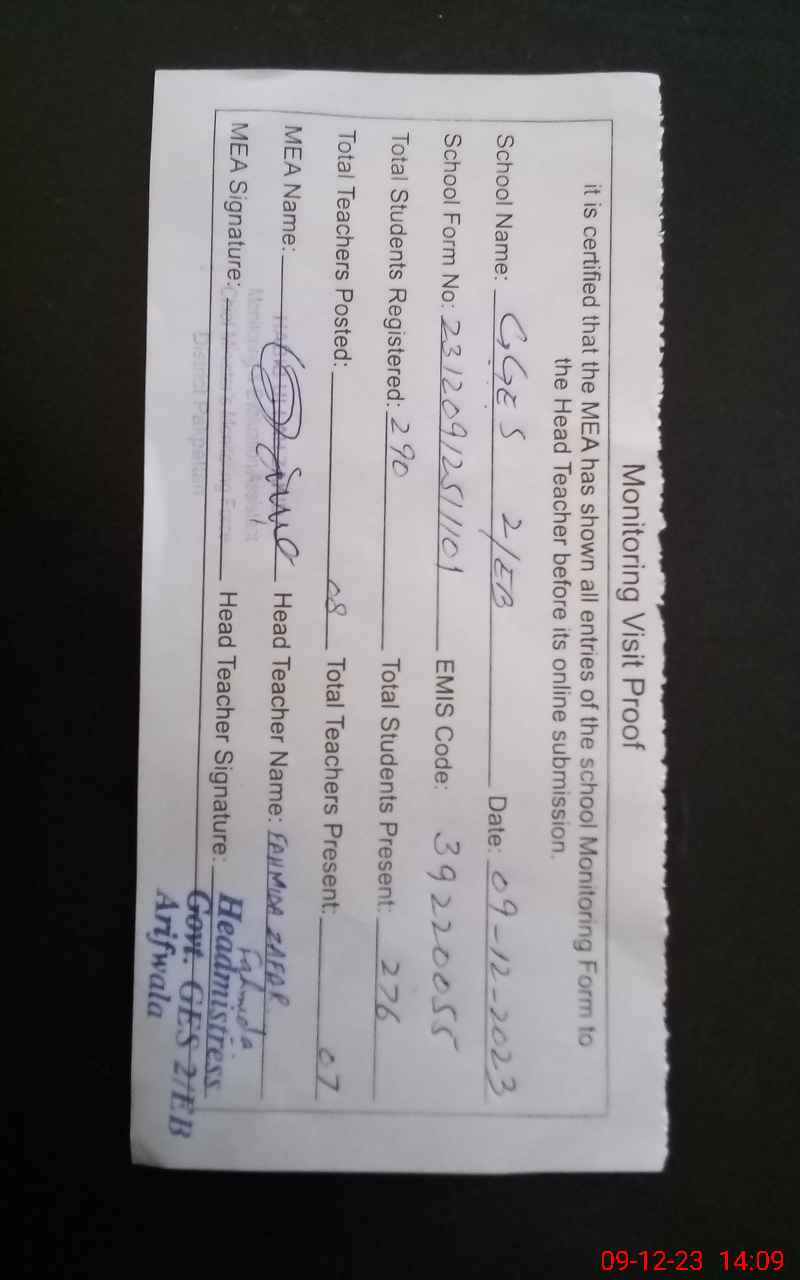 Monitoring Visit Proof
it is certified that the MEA has shown all entries of the school Monitoring Form to
the Head Teacher before its online submission.
School Name: GGES 2/EB Date: 09-12-2023
School Form No: EMIS Code: 39220055
Total Students Registered: 290 Total Students Present: 276
Total Teachers Posted: 08 Total Teachers Present: 07
MEA Name: Head Teacher Name: FAHMIDA ZAFAR
MEA Signature: Head Teacher Signature: Fahmida
District Pakpattan
Headmistress
Govt. GES 2/E.B
Arifwala
09-12-23 14:09